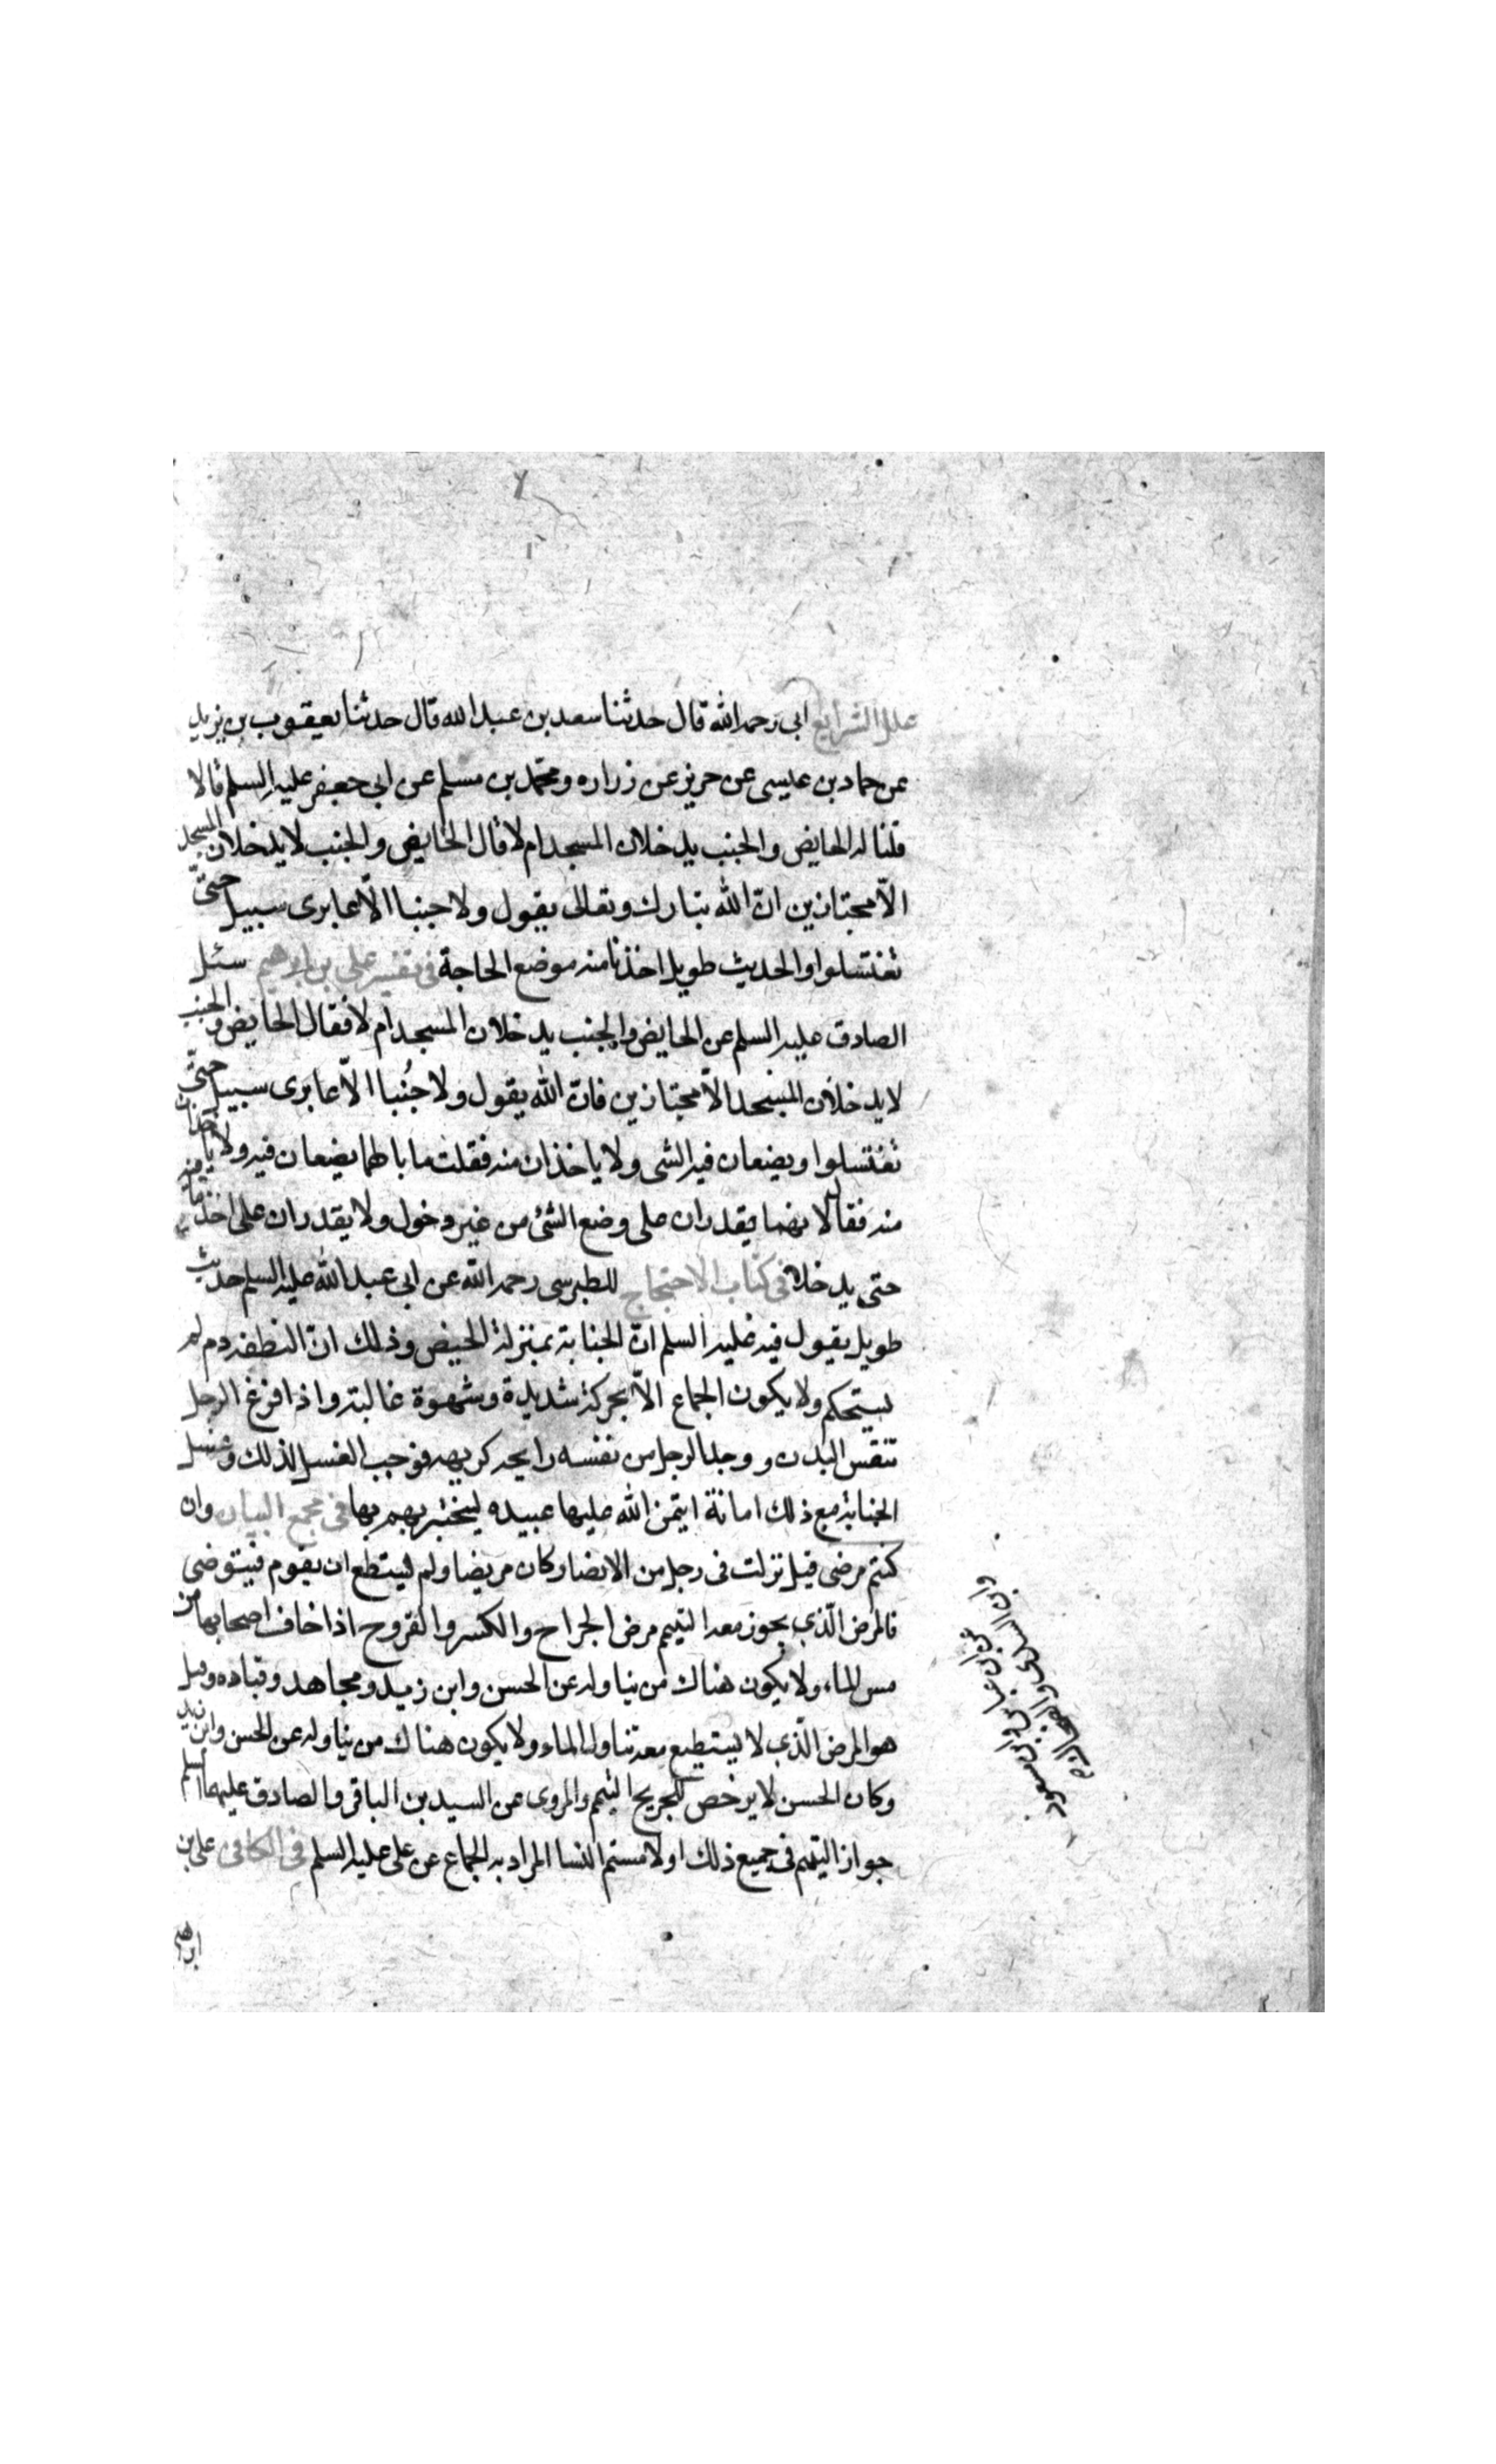 علل الشرايع ابى رحمه الله قال حدثنا سعد بن عبد الله قال حدثنا يعقوب بن يزيد
عن حماد بن عيسى عن حريز عن زراره ومحمد بن مسلم عن ابى جعفر عليه السلم قالا
قلنا له الحايض والجنب يدخلان المسجد ام لا قال الحايض والجنب لا يدخلان المسجد
الّا مجتازين انّ الله تبارك وتعالى يقول ولا جنبا الّا عابرى سبيل حتىّ
تغتسلوا والحديث طويل اخذنا منه موضع الحاجة فى تفسير على بن ابرهيم سئل
الصادق عليه السلم عن الحايض والجنب يدخلان المسجد ام لا فقال الحايض والجنب
لا يدخلان المسجد الّا مجتازين فانّ الله يقول ولا جُنُبا الّا عابرى سبيل حتىّ
تغتسلوا ويضعان فيه الشى ولا ياخذان منه فقلت ما بالهما يضعان فيه ولا ياخذان
منه فقال لانهما يقدران على وضع الشئ من غير دخول ولا يقدران على اخذ ما فيه
حتى يدخلا فى كتاب الاحتجاج للطبرسى رحمه الله عن ابى عبد الله عليه السلم حديث
طويل يقول فيه عليه السلم انّ الجنابة بمنزلة الحيض وذلك انّ النطفه دم لم
يستحكم ولا يكون الجماع الّا بحركة شديدة وشهوة غالبة واذا فرغ الرجل
تنفس البدن ووجد الرجل من نفسه رايحه كريهه فوجب الغسل لذلك وغسل
الجنابة مع ذلك امانة ايتمن الله عليها عبيده ليختبرهم بها فى مجمع البيان وان
كنتم مرضى قيل نزلت فى رجل من الانصا وكان مريضا ولم يستطع ان يقوم فيتوضى
فالمرض الّذى يجوز معه التيمم مرض الجراح والكسر والقروح اذا خاف اصحابها من
مس الماء ولا يكون هناك من يناوله عن الحسن وابن زيد ومجاهد وقتاده وقيل
هو المرض الّذى لا يستطيع معه تناول الماء ولا يكون هناك من يناوله عن الحسن وابن زيد
وكان الحسن لا يرخص للجريح التيمم والمروى عن السيدين الباقر والصادق عليهما السلم
جواز التيمم فى جميع ذلك او لامستم النسا المراد به الجماع عن على عليه السلم فى الكافى على بن
ابرهيم
عن ابن عباس وابن مسعود